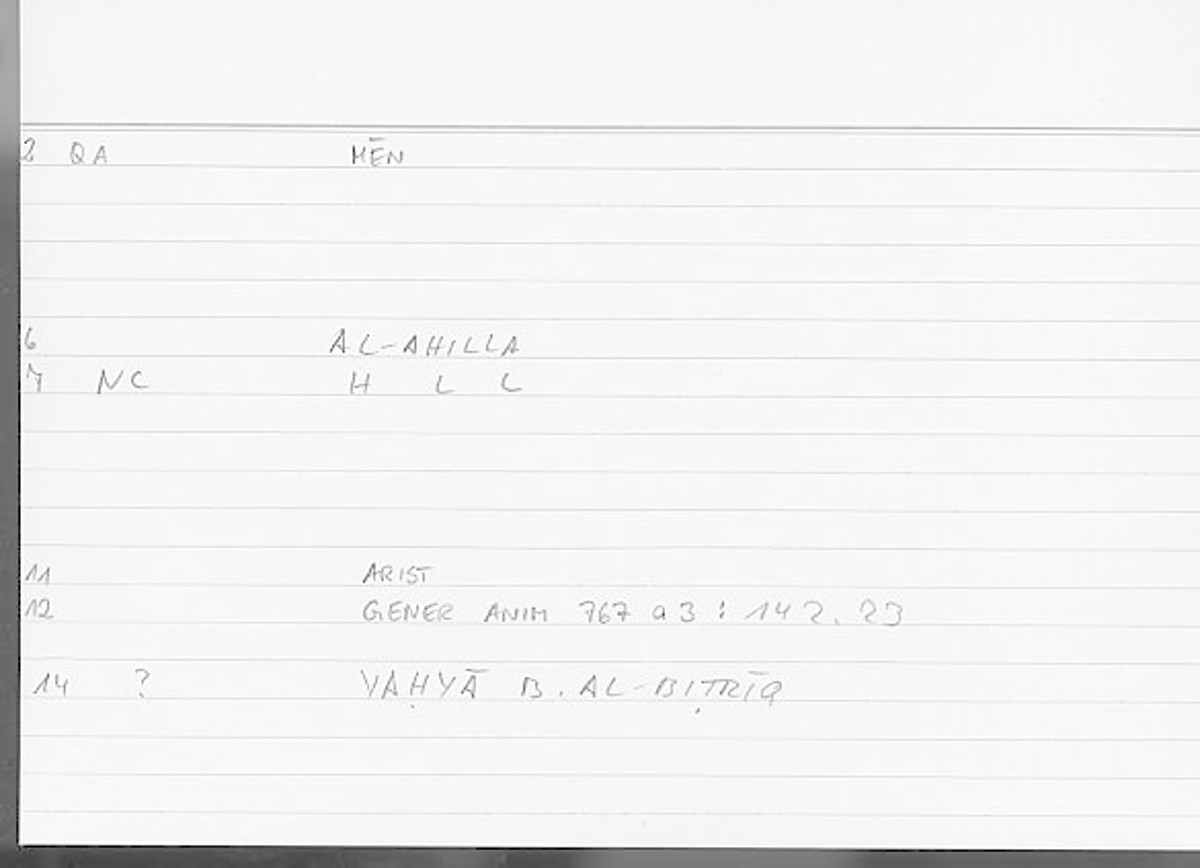 2 QA MĒN
6 AL-AHILLA
7 NC H L L
11 ARIST
12 GENER ANIM 767 a 3 : 142.23
14 ? YAḤYĀ B. AL-BIṬRĪQ